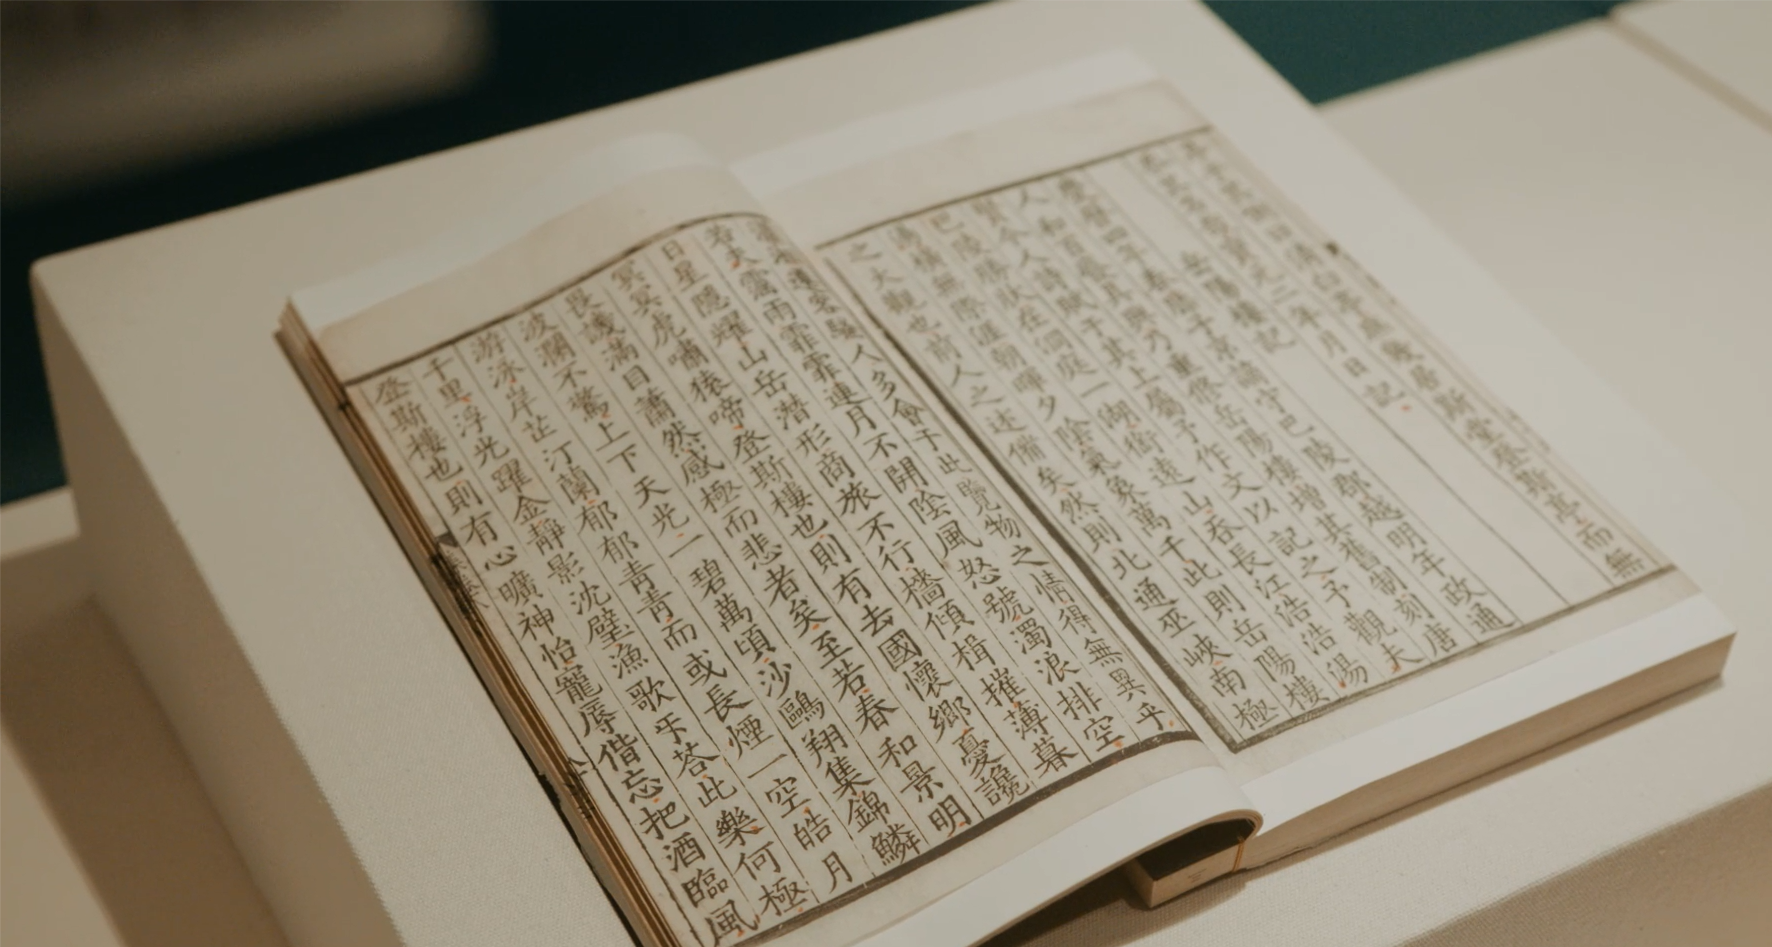 其側曰清白亭庶幾居斯堂登斯亭而無
忝其名哉寶元二年月日記
岳陽樓記
慶曆四年春滕子京謫守巴陵郡越明年政通
人和百廢具興乃重修岳陽樓增其舊制刻唐
賢今人詩賦于其上屬予作文以記之予觀夫
巴陵勝狀在洞庭一湖銜遠山吞長江浩浩湯
湯橫無際涯朝暉夕陰氣象萬千此則岳陽樓
之大觀也前人之述備矣然則北通巫峽南極
瀟湘遷客騷人多會于此覽物之情得無異乎
若夫霪雨霏霏連月不開陰風怒號濁浪排空
日星隱耀山岳潛形商旅不行檣傾楫摧薄暮
冥冥虎嘯猿啼登斯樓也則有去國懷鄉憂讒
畏譏滿目蕭然感極而悲者矣至若春和景明
波瀾不驚上下天光一碧萬頃沙鷗翔集錦鱗
游泳岸芷汀蘭郁郁青青而或長煙一空皓月
千里浮光躍金靜影沈璧漁歌互荅此樂何極
登斯樓也則有心曠神怡寵辱偕忘把酒臨風